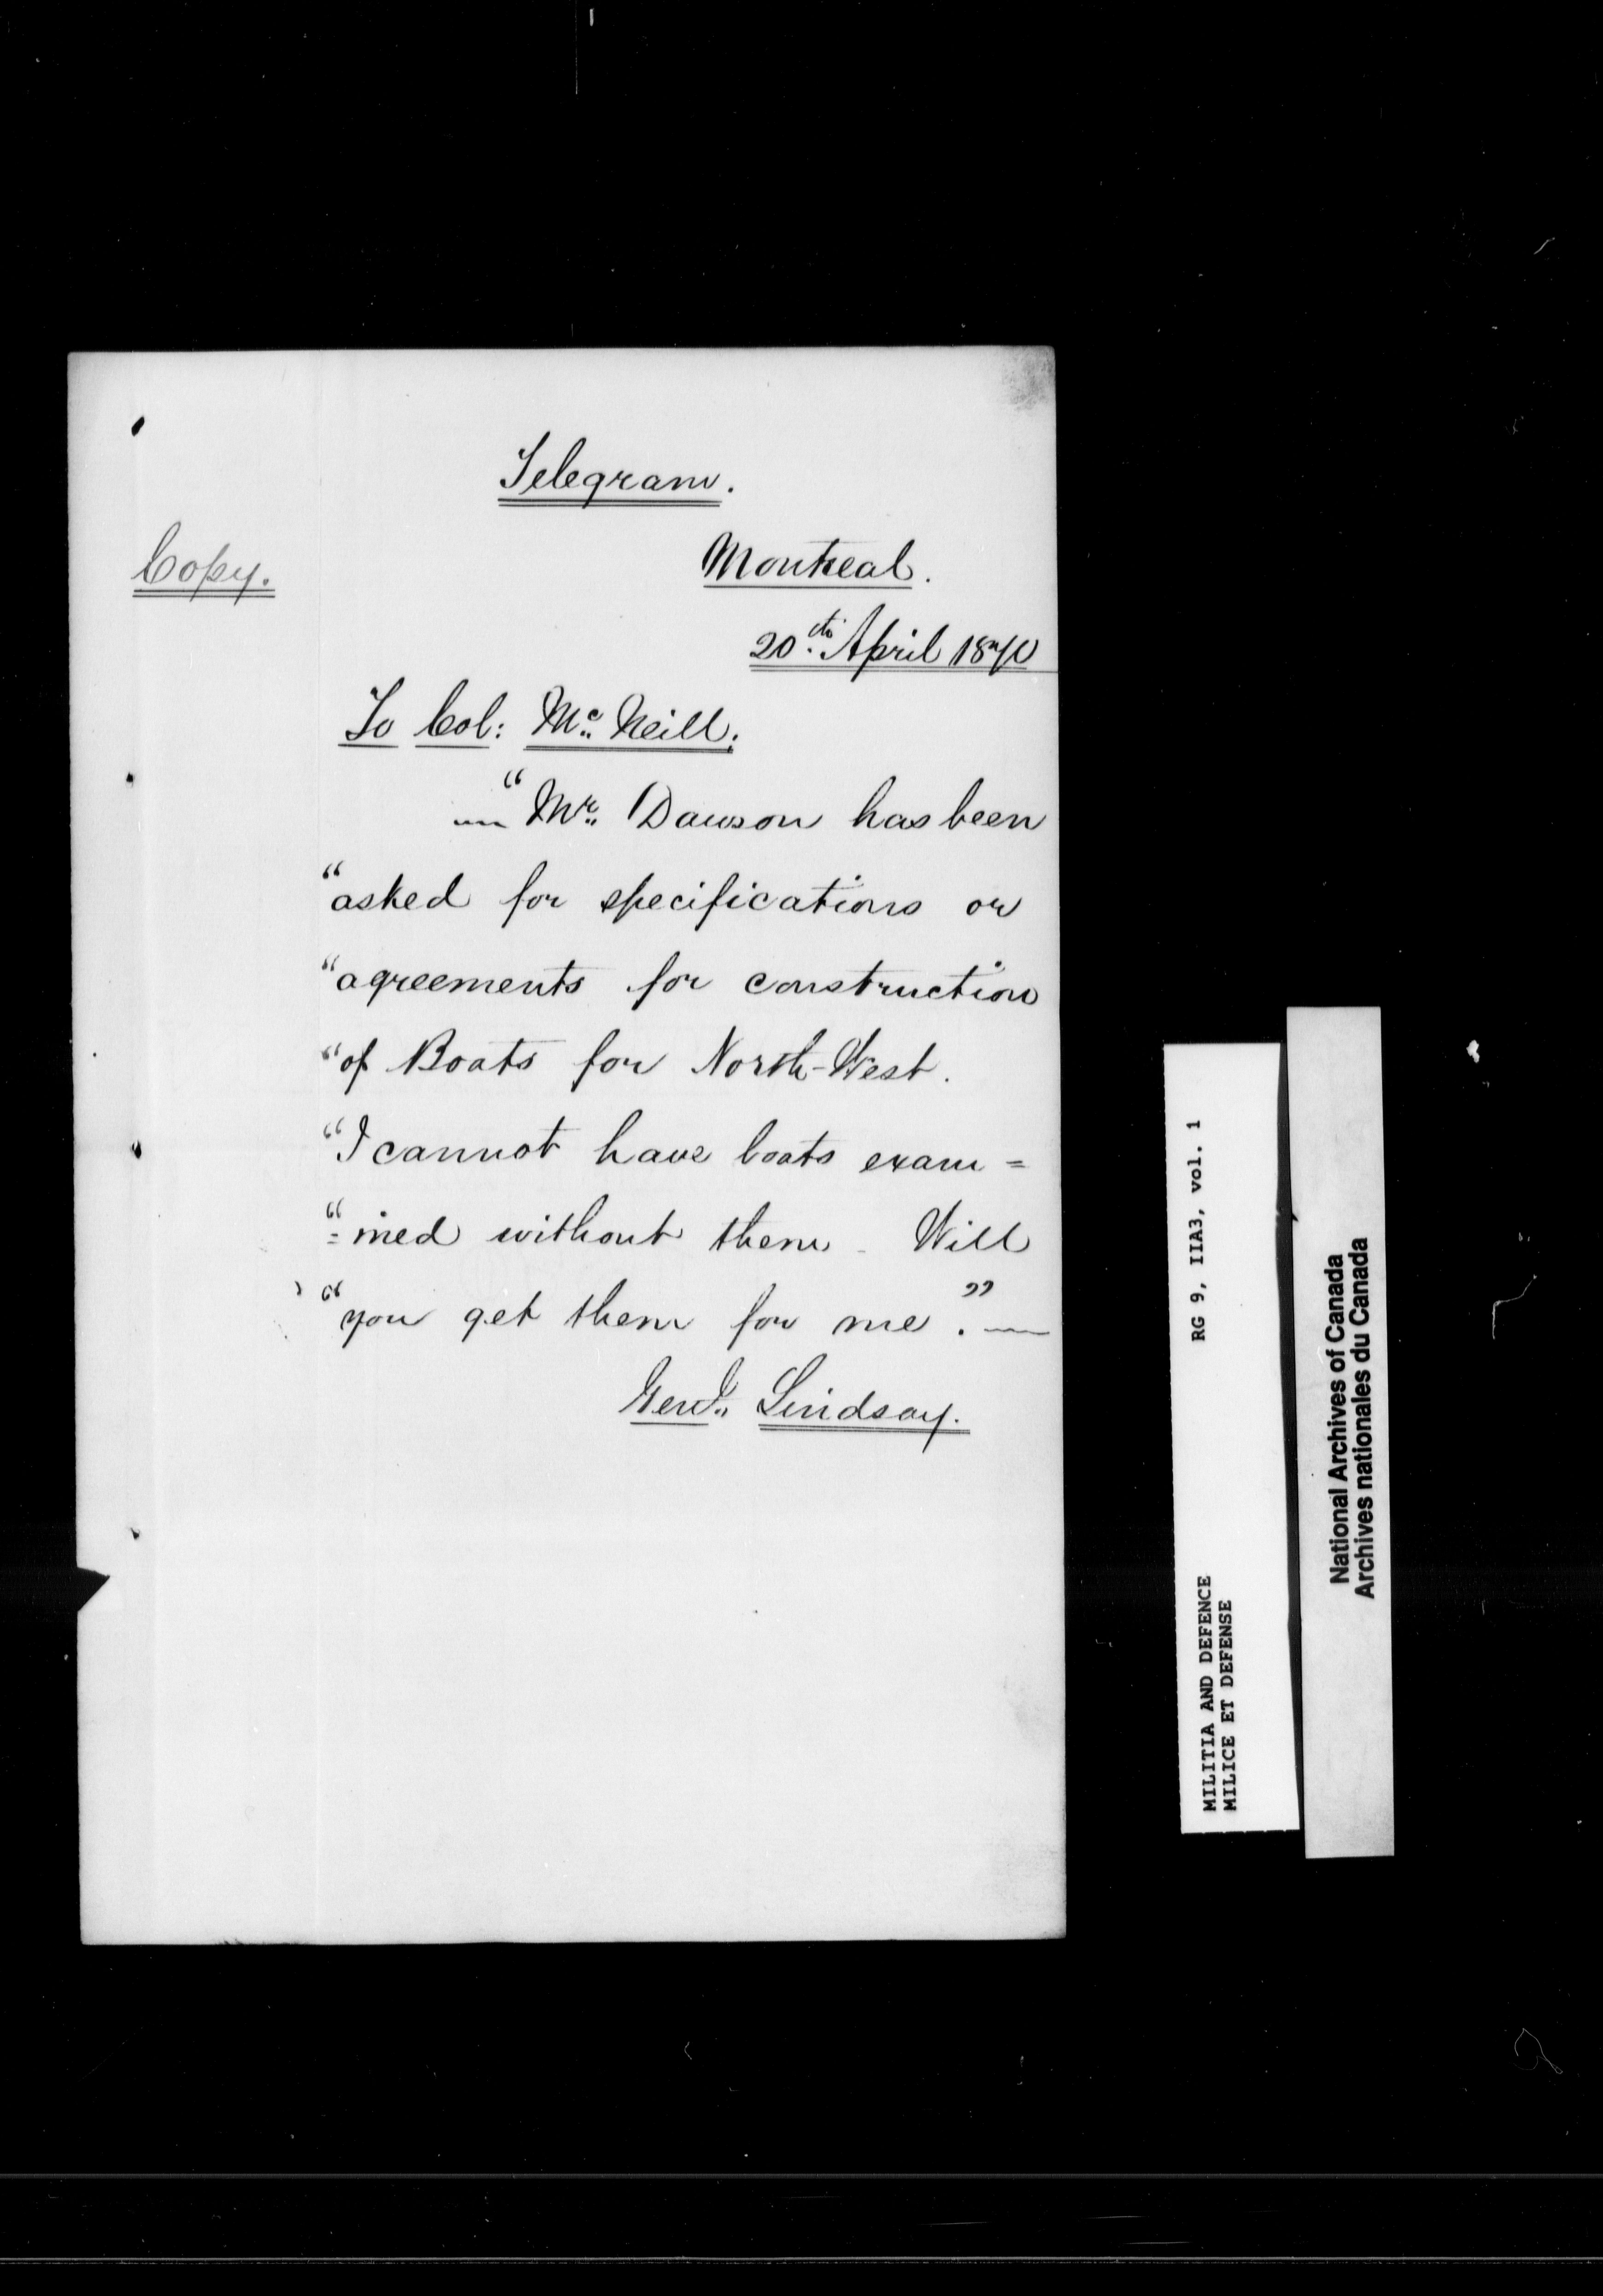 Telegram.
Copy.
Montreal.
20th. April 1870
To Col: Mc. Neill.
— "Mr. Dawson has been
"asked for specifications or
"agreements for construction
"of Boats for North-West.
"I cannot have boats exam=
"=ined without them – Will
"you get them for me." —
Genl. Lindsay.
RG 9, IIA3, vol. 1
MILITIA AND DEFENCE
MILICE ET DEFENSE
National Archives of Canada
Archives nationales du Canada